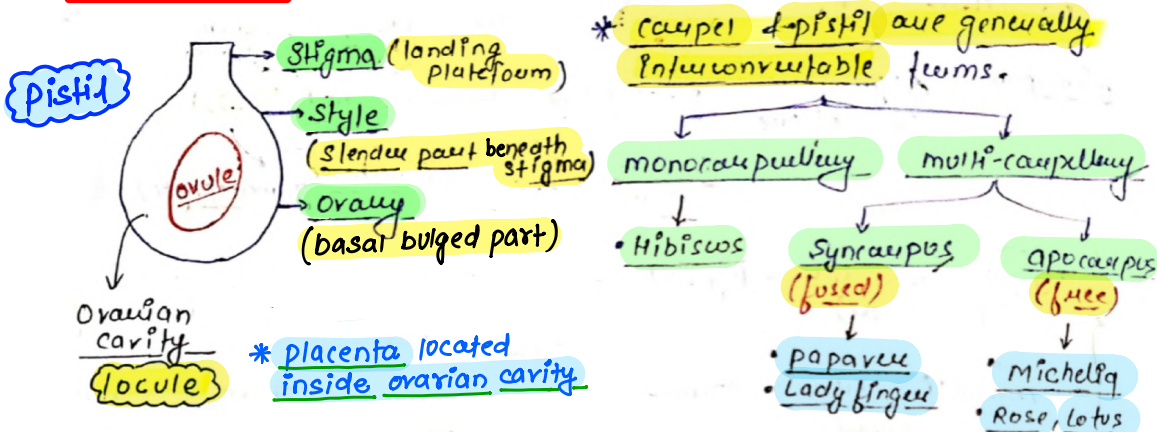 Pistil
Stigma (landing
platform)
Style
(slender part beneath
stigma)
Ovary
(basal bulged part)
ovule
Ovarian
cavity
locule
* placenta located
inside ovarian cavity
* carpel & pistil are generally
interconvertable terms.
monocarpellary
multi-carpellary
• Hibiscos
Syncarpus
(fused)
• papaver
• Lady finger
apocarpus
(free)
• Michelia
• Rose, Lotus